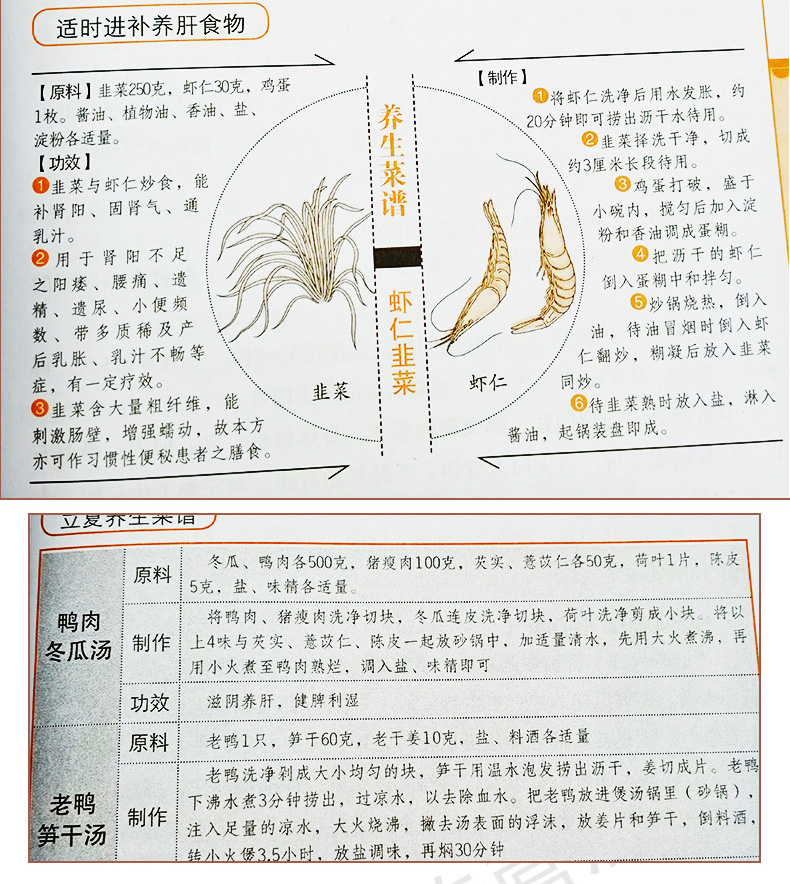 适时进补养肝食物
【原料】韭菜250克，虾仁30克，鸡蛋
1枚。酱油、植物油、香油、盐、
淀粉各适量。
【功效】
1 韭菜与虾仁炒食，能
补肾阳、固肾气、通
乳汁。
2 用于肾阳不足
之阳痿、腰痛、遗
精、遗尿、小便频
数、带多质稀及产
后乳胀、乳汁不畅等
症，有一定疗效。
3 韭菜含大量粗纤维，能
刺激肠壁，增强蠕动，故本方
亦可作习惯性便秘患者之膳食。
韭菜
养生菜谱
虾仁韭菜
虾仁
【制作】
1 将虾仁洗净后用水发胀，约
20分钟即可捞出沥干水待用。
2 韭菜择洗干净，切成
约3厘米长段待用。
3 鸡蛋打破，盛于
小碗内，搅匀后加入淀
粉和香油调成蛋糊。
4 把沥干的虾仁
倒入蛋糊中和拌匀。
5 炒锅烧热，倒入
油，待油冒烟时倒入虾
仁翻炒，糊凝后放入韭菜
同炒。
6 待韭菜熟时放入盐，淋入
酱油，起锅装盘即成。
立夏养生菜谱
鸭肉
冬瓜汤
原料
冬瓜、鸭肉各500克，猪瘦肉100克，芡实、薏苡仁各50克，荷叶1片，陈皮
5克，盐、味精各适量。
制作
将鸭肉、猪瘦肉洗净切块，冬瓜连皮洗净切块，荷叶洗净剪成小块。将以
上4味与芡实、薏苡仁、陈皮一起放砂锅中，加适量清水，先用大火煮沸，再
用小火煮至鸭肉熟烂，调入盐、味精即可
功效
滋阴养肝，健脾利湿
老鸭
笋干汤
原料
老鸭1只，笋干60克，老干姜10克，盐、料酒各适量
制作
老鸭洗净剁成大小均匀的块，笋干用温水泡发捞出沥干，姜切成片。老鸭
下沸水煮3分钟捞出，过凉水，以去除血水。把老鸭放进煲汤锅里（砂锅），
注入足量的凉水，大火烧沸，撇去汤表面的浮沫，放姜片和笋干，倒料酒，
转小火煲3.5小时，放盐调味，再焖30分钟